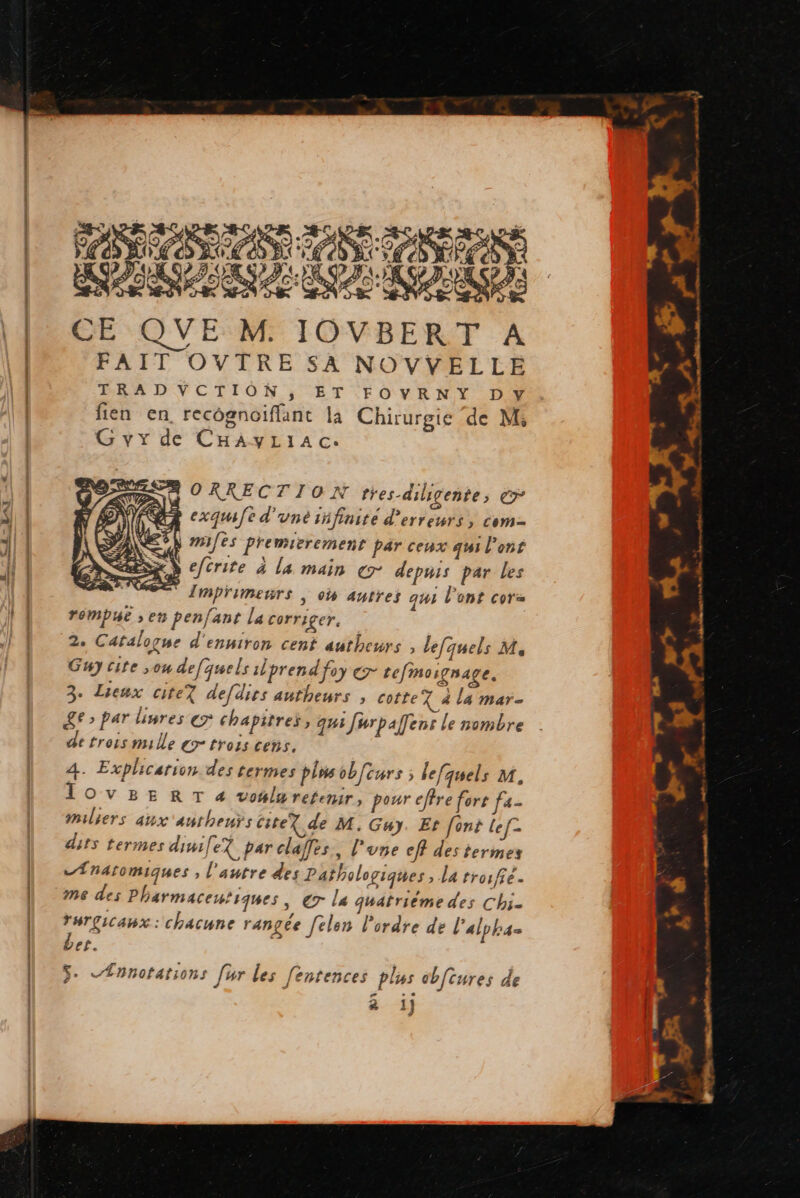 CE QVE M. IOVBERT A
FAIT OVTRE SA NOVVELLE
TRADVCTION, ET FOVRNY DV
ſien en recógnoiſſant la Chirurgie de M.
GVY de CHAVLIAC.
CORRECTION tres-diligente, &
exquiſe d'vne infinité d'erreurs, com-
miſes premierement par ceux qui l'ont
eſcrite à la main & depuis par les
Imprimeurs, ou autres qui l'ont cor-
rompuë, en penſant la corriger.
2. Catalogue d'enuiron cent autheurs, leſquels M.
Guy cite, ou deſquels il prend foy & teſmoignage.
3. Lieux citeZ deſdits autheurs, cotteZ à la mar-
ge, par liures & chapitres, qui ſurpaſſent le nombre
de trois mille & trois cens.
4. Explication des termes plus obſcurs, leſquels M.
IOVBERT a voulu retenir, pour eſtre fort fa-
miliers aux autheurs citeZ de M. Guy. Et ſont leſ-
dits termes diuiſeZ par claſſes, l'vne eſt des termes
Anatomiques, l'autre des Pathologiques, la troiſié-
me des Pharmaceutiques, & la quatriéme des Chi-
rurgicaux: chacune rangée ſelon l'ordre de l'alpha-
bet.
5. Annotations ſur les ſentences plus obſcures de
ã ij